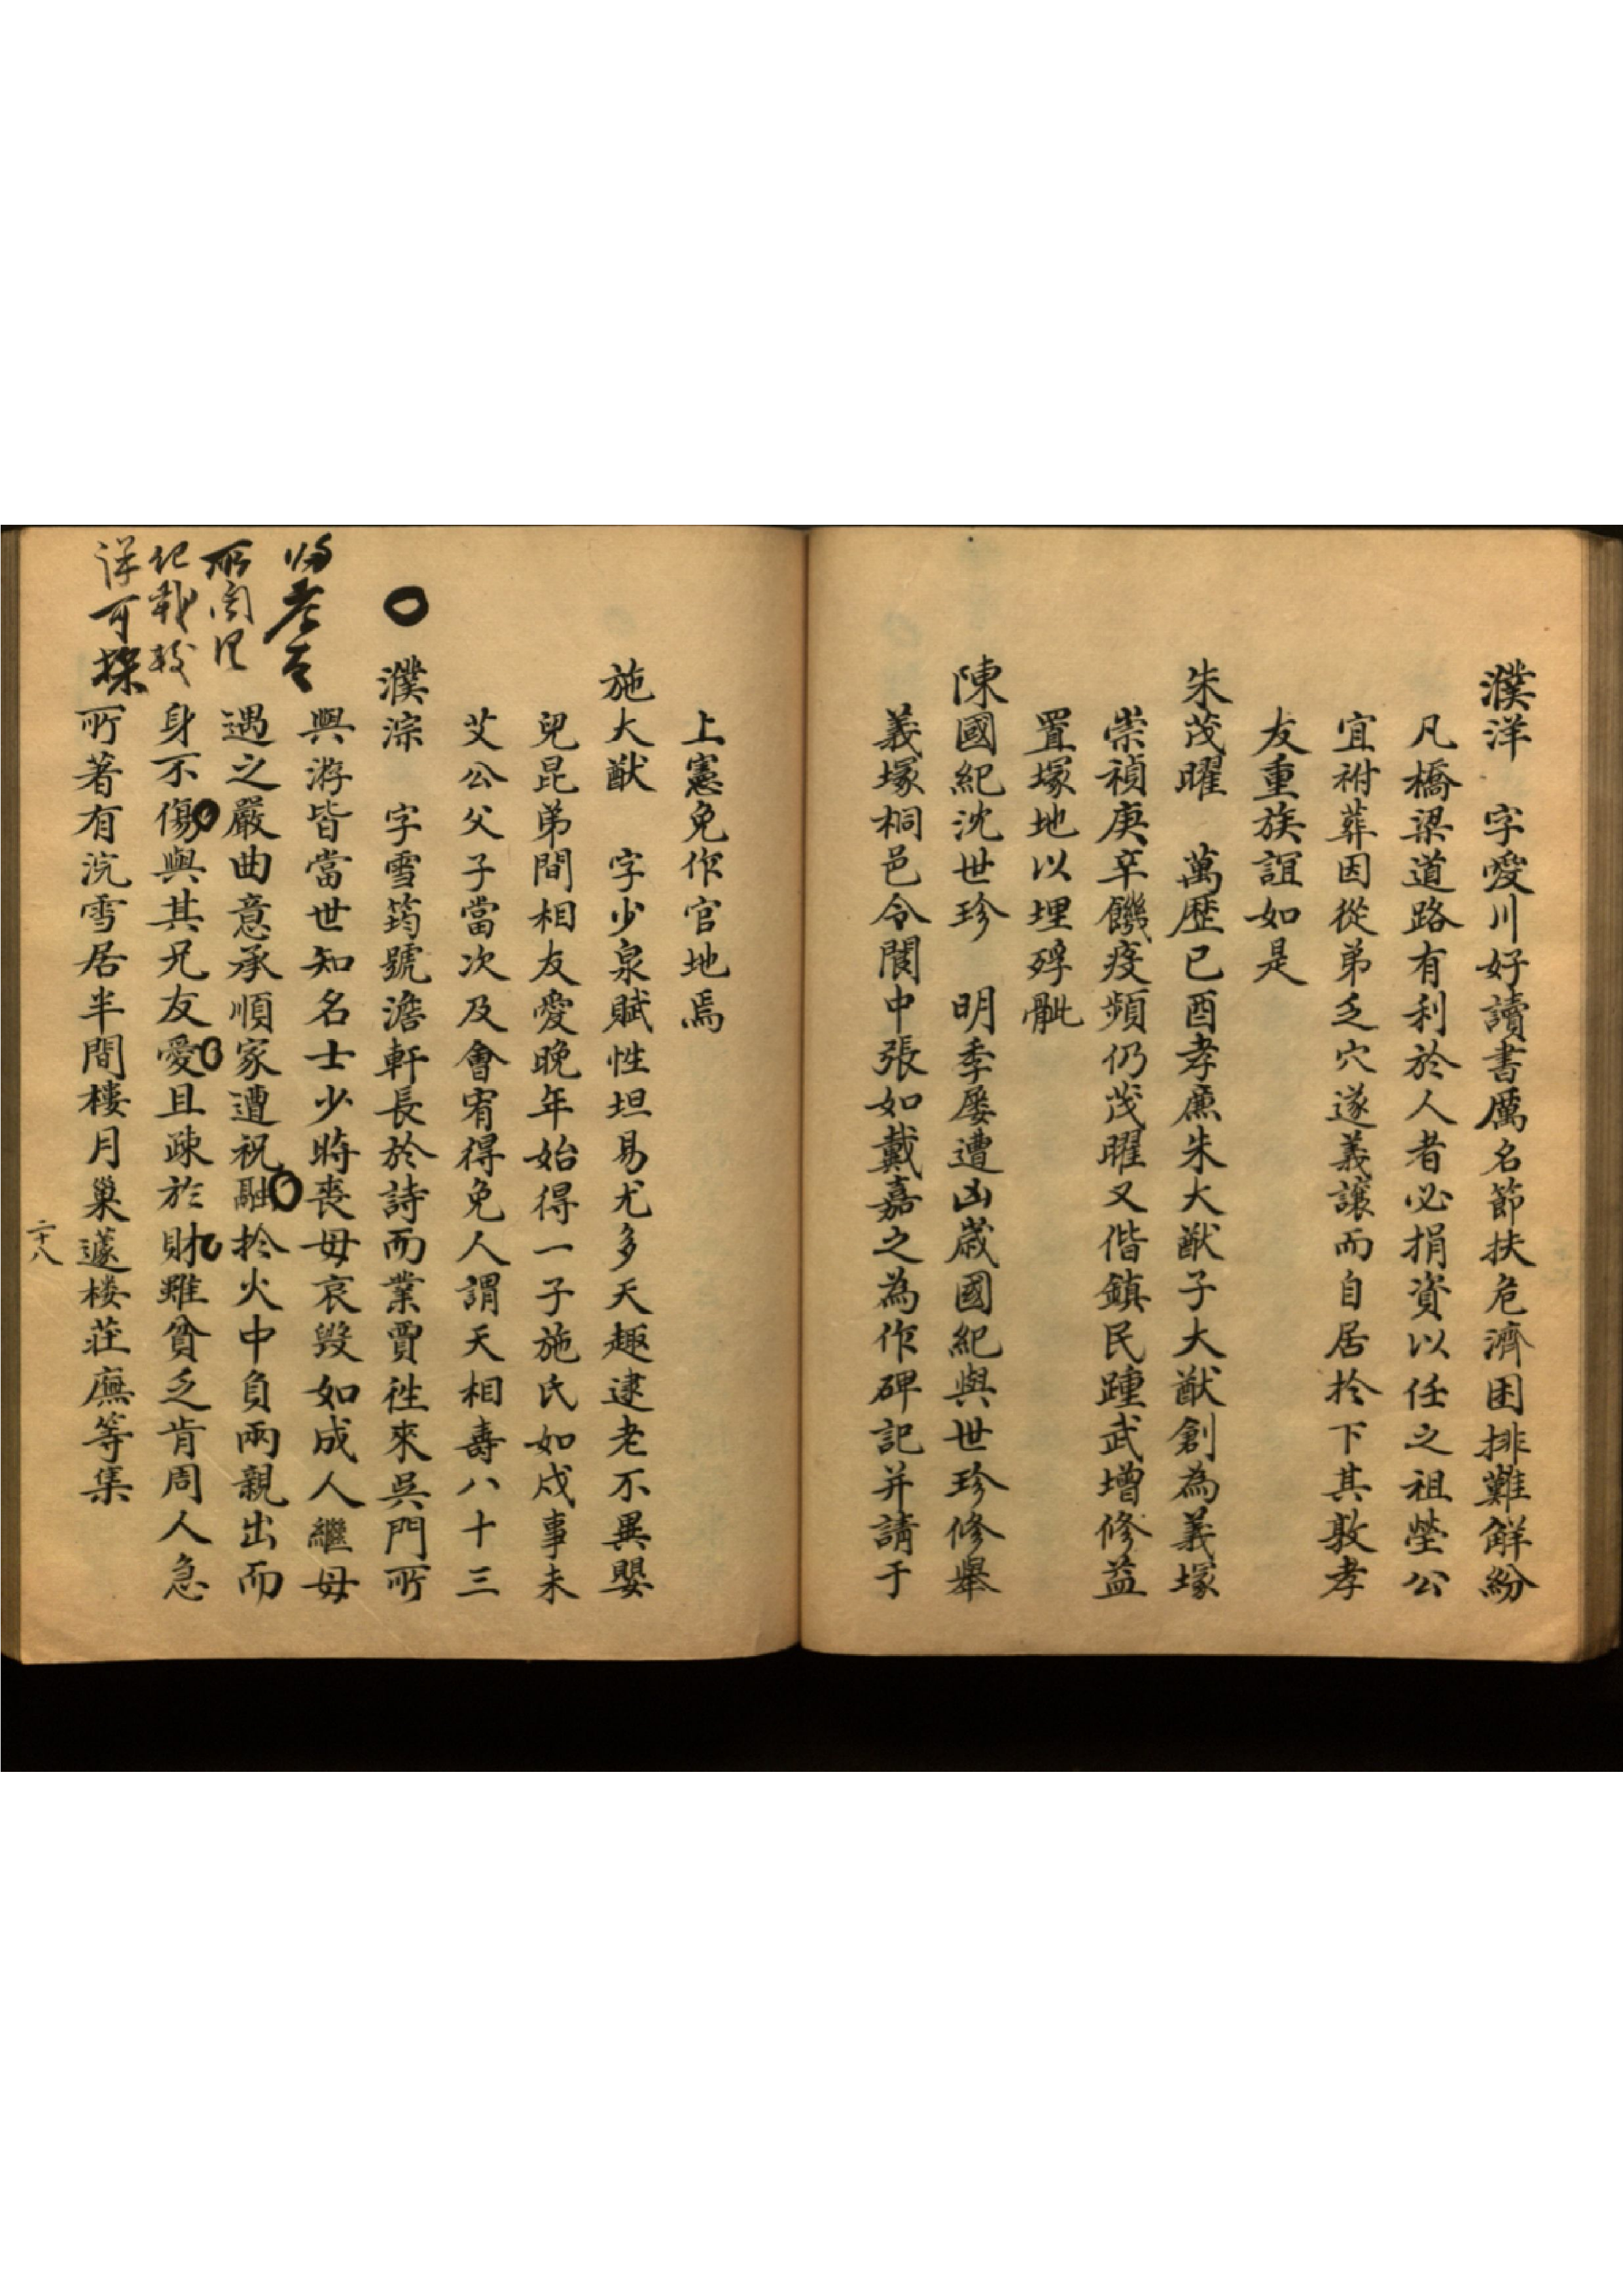 濮洋　字愛川好讀書厲名節扶危濟困排難解紛
凡橋梁道路有利於人者必捐資以任之祖塋公
宜祔葬因從弟乏穴遂義讓而自居扵下其敦孝
友重族誼如是
朱茂曜　萬歷已酉孝廉朱大猷子大猷創為義塚
崇禎庚辛饑疫頻仍茂曜又偕鎮民踵武增修益
置塚地以埋殍骴
陳國紀沈世珍　明季屡遭凶歲國紀與世珍修舉
義塚桐邑令閬中張如戴嘉之為作碑記并請于
上憲免作官地焉
施大猷　字少泉賦性坦易尤多天趣逮老不異嬰
兒昆弟間相友愛晚年始得一子施氏如成事未
艾公父子當次及會宥得免人謂天相壽八十三
濮淙　字雪筠號澹軒長於詩而業賈徃來吳門所
與游皆當世知名士少時喪母哀毀如成人繼母
遇之嚴曲意承順家遭祝融扵火中負兩親出而
身不傷與其兄友愛且疎於財雖貧乏肯周人急
所著有沆雪居半間樓月巢蘧楼莊廡等集
所
紀載較
詳可採
二十八